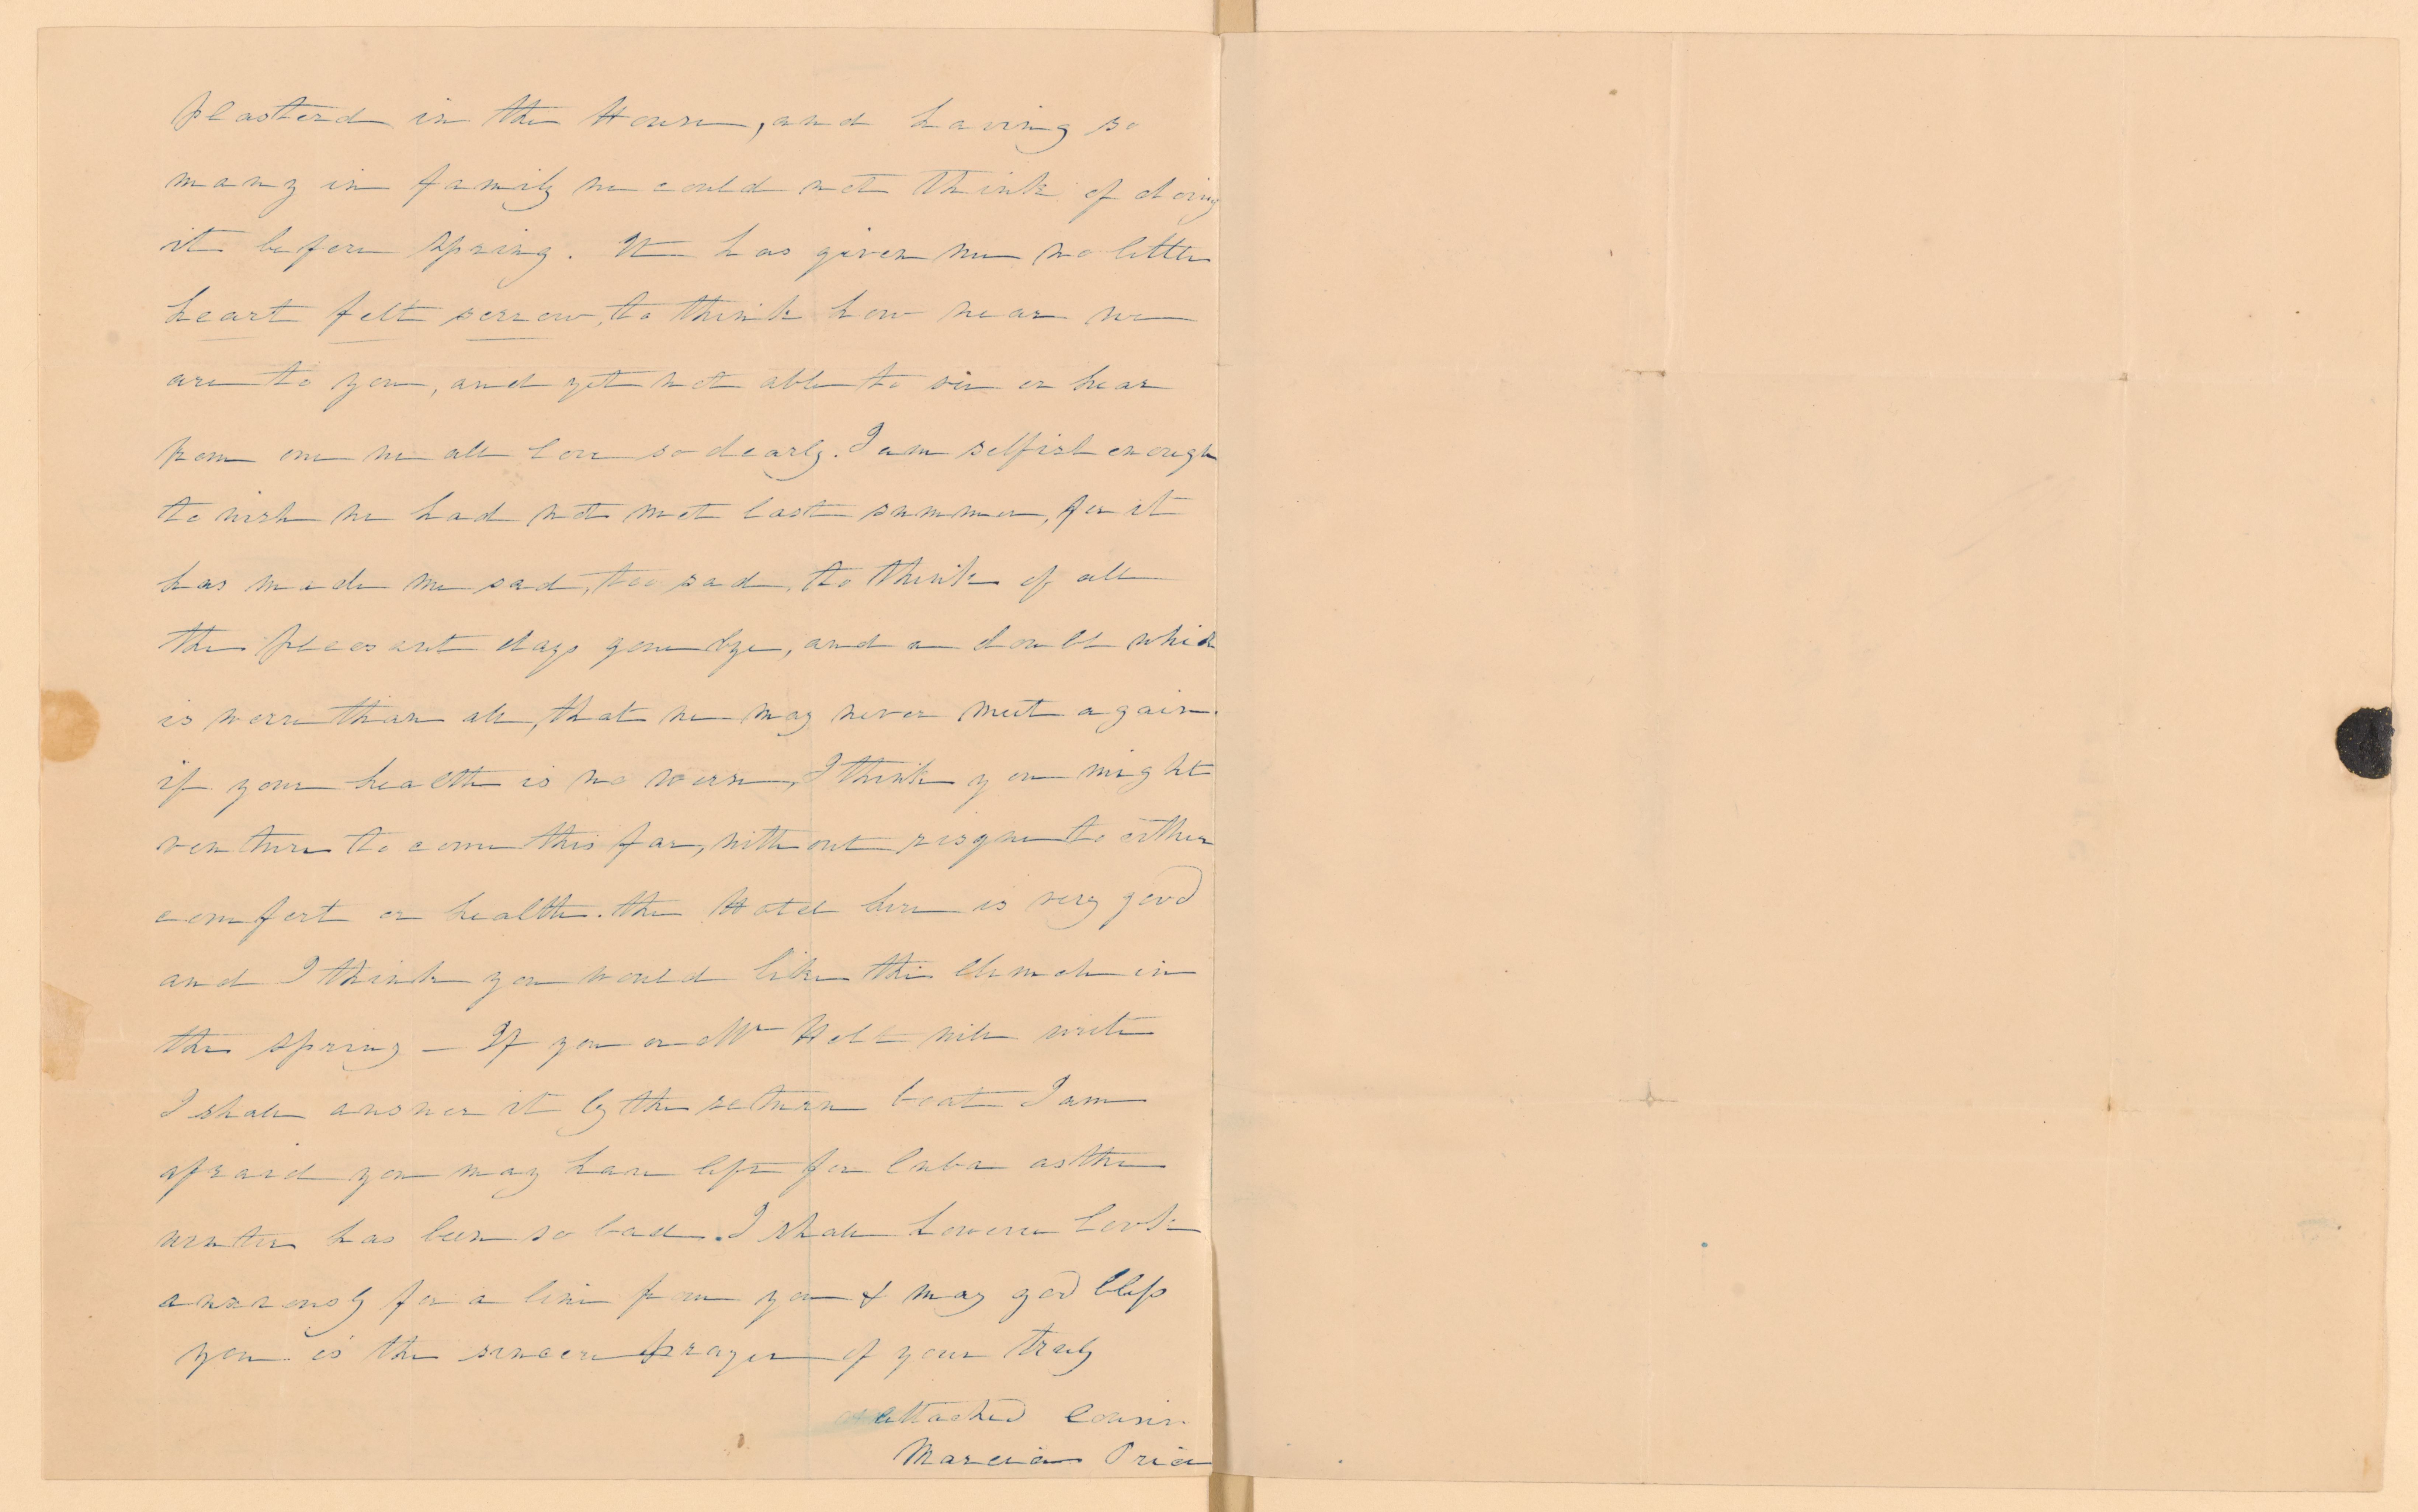 plasterd in the House, and having so
many in family we could not think of doing
it before spring. It has given me no little
heart felt sorrow, to think how near we
are to you, and yet not able to see or hear
from one we all love so dearly. I am selfish enough
to wish we had not met last summer, for it
has made me sad, too sad, to think of all
the pleasant days gone bye, and a doubt which
is worse than all, that we may never meet again.
if your health is no worse, I think you might
venture to come this far, without risque to either
comfort or health. the Hotel here is very good
and I think you would like the Church in
the spring – If you or Mr Holt will write
I shall answer it by the return boat I am
afraid you may have left for Cuba as the
winter has been so bad. I shall however look
anxiously for a line from you & may god bless
you is the sincere prayer of your truly
attached Cousin
Marcia Price